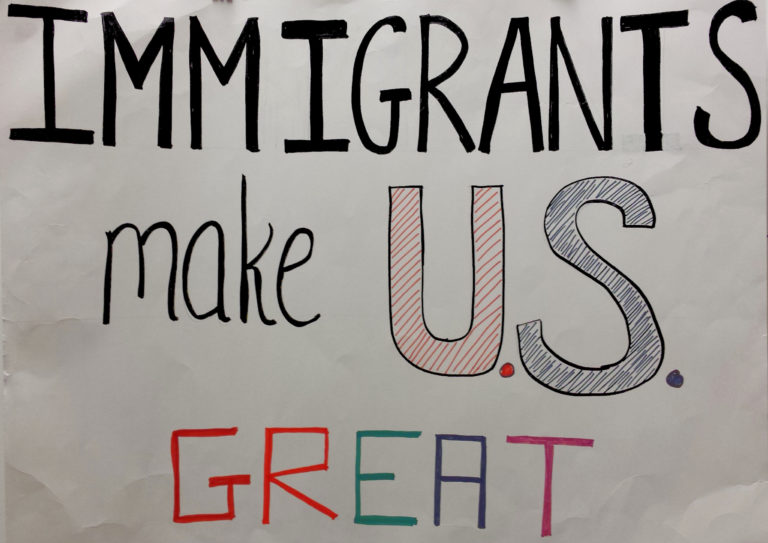 IMMIGRANTS
make U.S.
GREAT